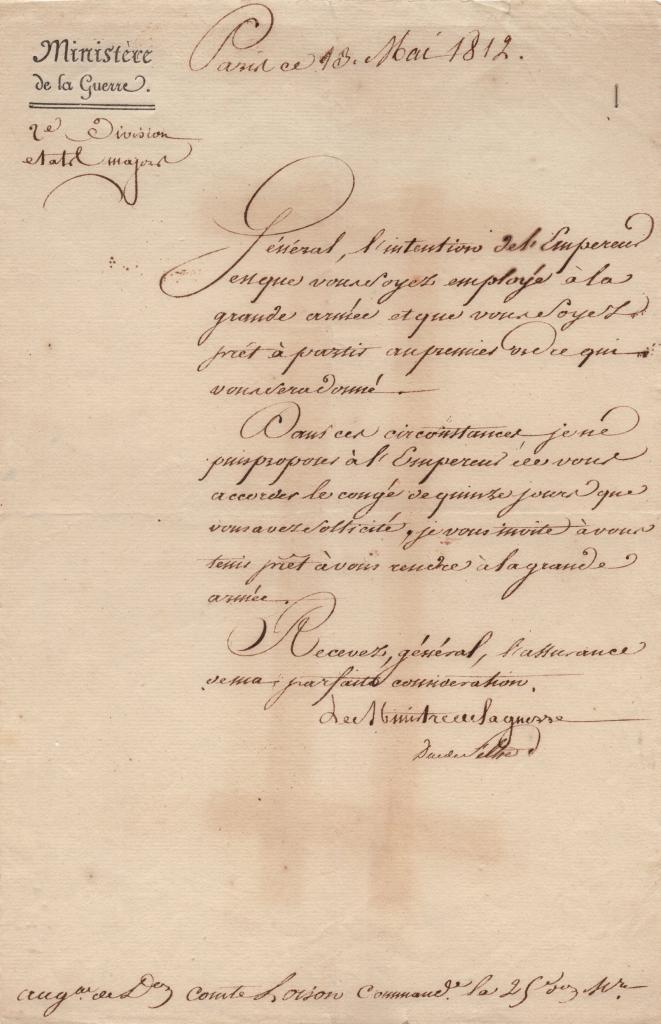 Ministère
de la Guerre.
2e Division
etats majors
Paris ce 13. Mai 1812.
Général, l'intention de l'Empereur
est que vous soyez employé à la
grande armée et que vous soyez
prêt à partir au premier ordre qui
vous sera donné.
Dans ces circonstances je ne
puis proposer à l'Empereur de vous
accorder le congé de quinze jours que
vous avez sollicité, je vous invite à vous
tenir prêt à vous rendre à la grande
armée.
Recevez, général, l'assurance
de ma parfaite considération.
Le Ministre de la guerre
Duc de Feltre
au g.al de D.on comte Loison Command.t la 25e D.on M.re